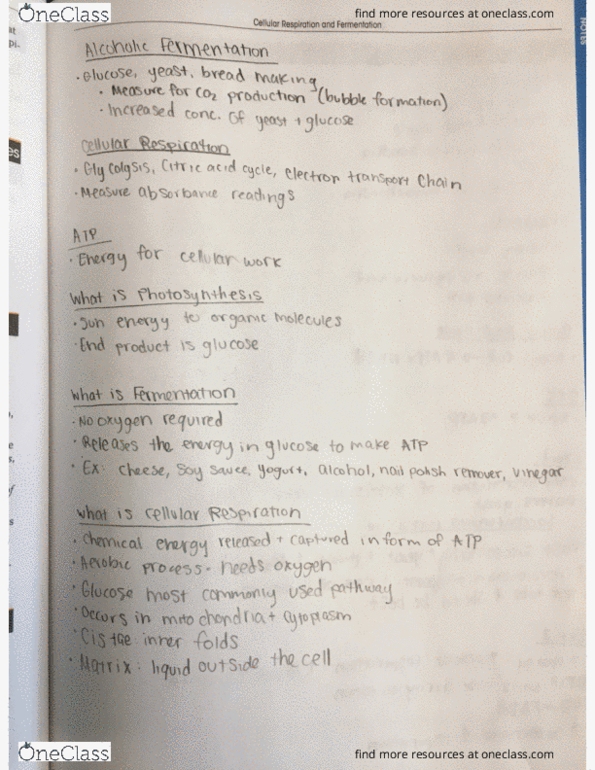 OneClass
find more resources at oneclass.com
Cellular Respiration and Fermentation
NOTES
Alcoholic Fermentation
· Glucose, yeast, bread making
• Measure for CO2 production (bubble formation)
· Increased conc. Of yeast + glucose
Cellular Respiration
· Glycolgsis, Citric acid cycle, electron transport Chain
· Measure absorbance readings
ATP
· Energy for cellular work
What is Photosynthesis
· Sun energy to organic molecules
· End product is glucose
What is Fermentation
· No oxygen required
· Releases the energy in glucose to make ATP
· Ex: cheese, Soy sauce, yogurt, alcohol, nail polish remover, vinegar
What is cellular Respiration
· Chemical energy released + captured in form of ATP
· Aerobic process - needs oxygen
· Glucose most commonly used pathway
· Occurs in mitochondria + cytoplasm
· Cistae: inner folds
· Matrix: liquid outside the cell
OneClass
find more resources at oneclass.com